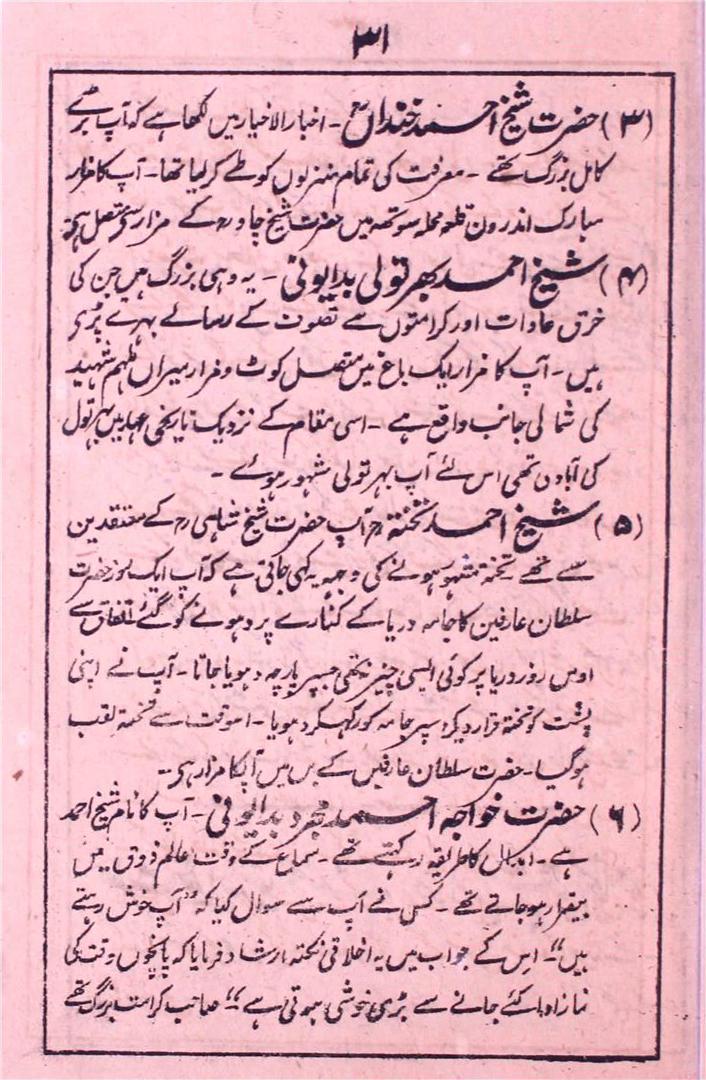 ۳۱
(۳) حضرت شیخ احمد خنداںؒ - اخبار الاخیار میں لکھا ہے کہ آپ بڑے
کامل بزرگ تھے - معرفت کی تمام منزلوں کو طے کر لیا تھا - آپ کا مزار
مبارک اندرون قلعہ محلہ سوتھہ میں حضرت شیخ چاورہ کے مزار سے متصل ہے
(۴) شیخ احمد بھرتولی بدایونی - یہ وہی بزرگ ہیں جن کی
خرق عادات اور کرامتوں سے تصوف کے رسالے بہرے پڑی
ہیں - آپ کا مزار ایک باغ میں متصل کوٹ و مزار میراں ملہم شہید
کی شمالی جانب واقع ہے - اسی مقام کے نزدیک تاریخی عہد میں بہرتول
کی آبادی تھی اس لئے آپ بہرتولی مشہور ہوئے -
(۵) شیخ احمد تختہ رح آپ حضرت شیخ شاہی رح کے معتقدین
سے تھے تختہ مشہور ہونے کی وجہہ یہ کہی جاتی ہے کہ آپ ایک روز حضرت
سلطان عارفین کا جامہ دریا کے کنارے پر دہونے کو گئے اتفاق سے
اوس روز دریا پر کوئی ایسی چیز نتھی جسپر پارچہ دہویا جاتا - آپ نے اپنی
پشت کو تختہ قرار دیکر اسپر جامہ کو رکہکر دہویا - اسوقت سے تختہ لقب
ہوگیا - حضرت سلطان عارفین کے بن میں آپکا مزار ہے -
(۶) حضرت خواجہ احمد مجرد بدایونی - آپ کا نام شیخ احمد
ہے - ابدال کا طریقہ رکہتے تھے - سماع کے وقت عالم ذوق میں
بیقرار ہو جاتے تھے - کسی نے آپ سے سوال کیا کہ ”آپ خوش رہتے
ہیں“ - اس کے جواب میں یہ اخلاقی نکتہ ارشاد فرمایا کہ پانچوں وقت کی
نماز ادا کئے جانے سے بڑی خوشی ہوتی ہے“ صاحب کرامت بزرگ تھے